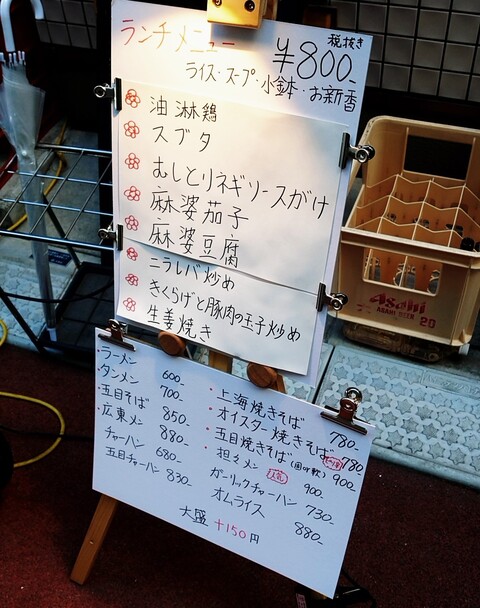 ランチメニュー
税抜き
¥800-
ライス・スープ・小鉢・お新香
油淋鶏
スブタ
むしとりネギソースがけ
麻婆茄子
麻婆豆腐
ニラレバ炒め
きくらげと豚肉の玉子炒め
生姜焼き
・ラーメン 600-
・タンメン 700-
・五目そば 850-
・広東メン 880-
チャーハン 680-
五目チャーハン 830-
・上海焼きそば 780-
・オイスター焼きそば 780
・五目焼きそば 900-
・担々メン 900-
ガーリックチャーハン 730-
オムライス 880-
大盛 +150円
Asahi
ASAHI BEER 20